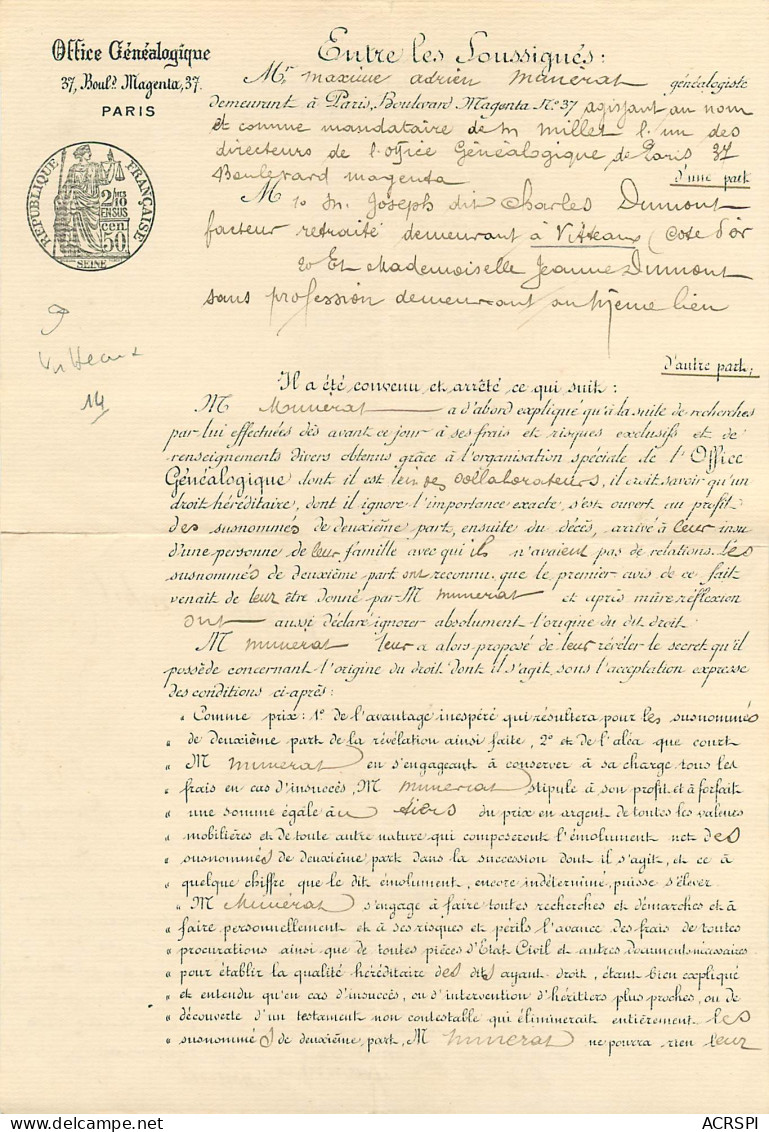 Office Généalogique
37, Boul.d Magenta, 37.
PARIS
RÉPUBLIQUE FRANÇAISE
2/10 EN SUS
50 cen.
SEINE
Vitteaux
14
Entre les Soussignés :
Mr. maxime adrien Munérat généalogiste
demeurant à Paris, Boulevard Magenta No. 37 agissant au nom
et comme mandataire de m millet l'un des
directeurs de l'office Généalogique de Paris 37
Boulevard magenta d'une part
M 1o m. Joseph dit Charles Dumont
facteur retraité demeurant à Vitteaux (Cote d'or
2o Et Mademoiselle Jeanne Dumont
sans profession demeurant au même lieu
d'autre part;
Il a été convenu et arrêté ce qui suit :
M Munerat a d'abord expliqué qu'à la suite de recherches
par lui effectuées dès avant ce jour à ses frais et risques exclusifs et de
renseignements divers obtenus grâce à l'organisation spéciale de l'Office
Généalogique dont il est l'un des collaborateurs, il croit savoir qu'un
droit héréditaire, dont il ignore l'importance exacte, s'est ouvert au profit
des susnommés de deuxième part, ensuite du décès, arrivé à leur insu
d'une personne de leur famille avec qui ils n'avaient pas de relations. Les
susnommés de deuxième part ont reconnu que le premier avis de ce fait
venait de leur être donné par M munerat et après mûre réflexion
ont aussi déclaré ignorer absolument l'origine du dit droit.
M munerat leur a alors proposé de leur révéler le secret qu'il
possède concernant l'origine du droit dont il s'agit, sous l'acceptation expresse
des conditions ci-après :
" Comme prix : 1o de l'avantage inespéré qui résultera pour les susnommés
" de deuxième part de la révélation ainsi faite, 2o et de l'aléa que court
" M munerat en s'engageant à conserver à sa charge tous les
" frais en cas d'insuccès, M munerat stipule à son profit et à forfait
" une somme égale au tiers du prix en argent de toutes les valeurs
" mobilières et de toute autre nature qui composeront l'émolument net des
" susnommés de deuxième part dans la succession dont il s'agit, et ce à
" quelque chiffre que le dit émolument, encore indéterminé, puisse s'élever.
" M Munérat s'engage à faire toutes recherches et démarches et à
" faire personnellement et à ses risques et périls l'avance des frais de toutes
" procurations ainsi que de toutes pièces d'État Civil et autres documents nécessaires
" pour établir la qualité héréditaire des dits ayant droit, étant bien expliqué
" et entendu qu'en cas d'insuccès, ou d'intervention d'héritiers plus proches, ou de
" découverte d'un testament non contestable qui éliminerait entièrement les
" susnommés de deuxième part, M munerat ne pourra rien leur
ACRSPI